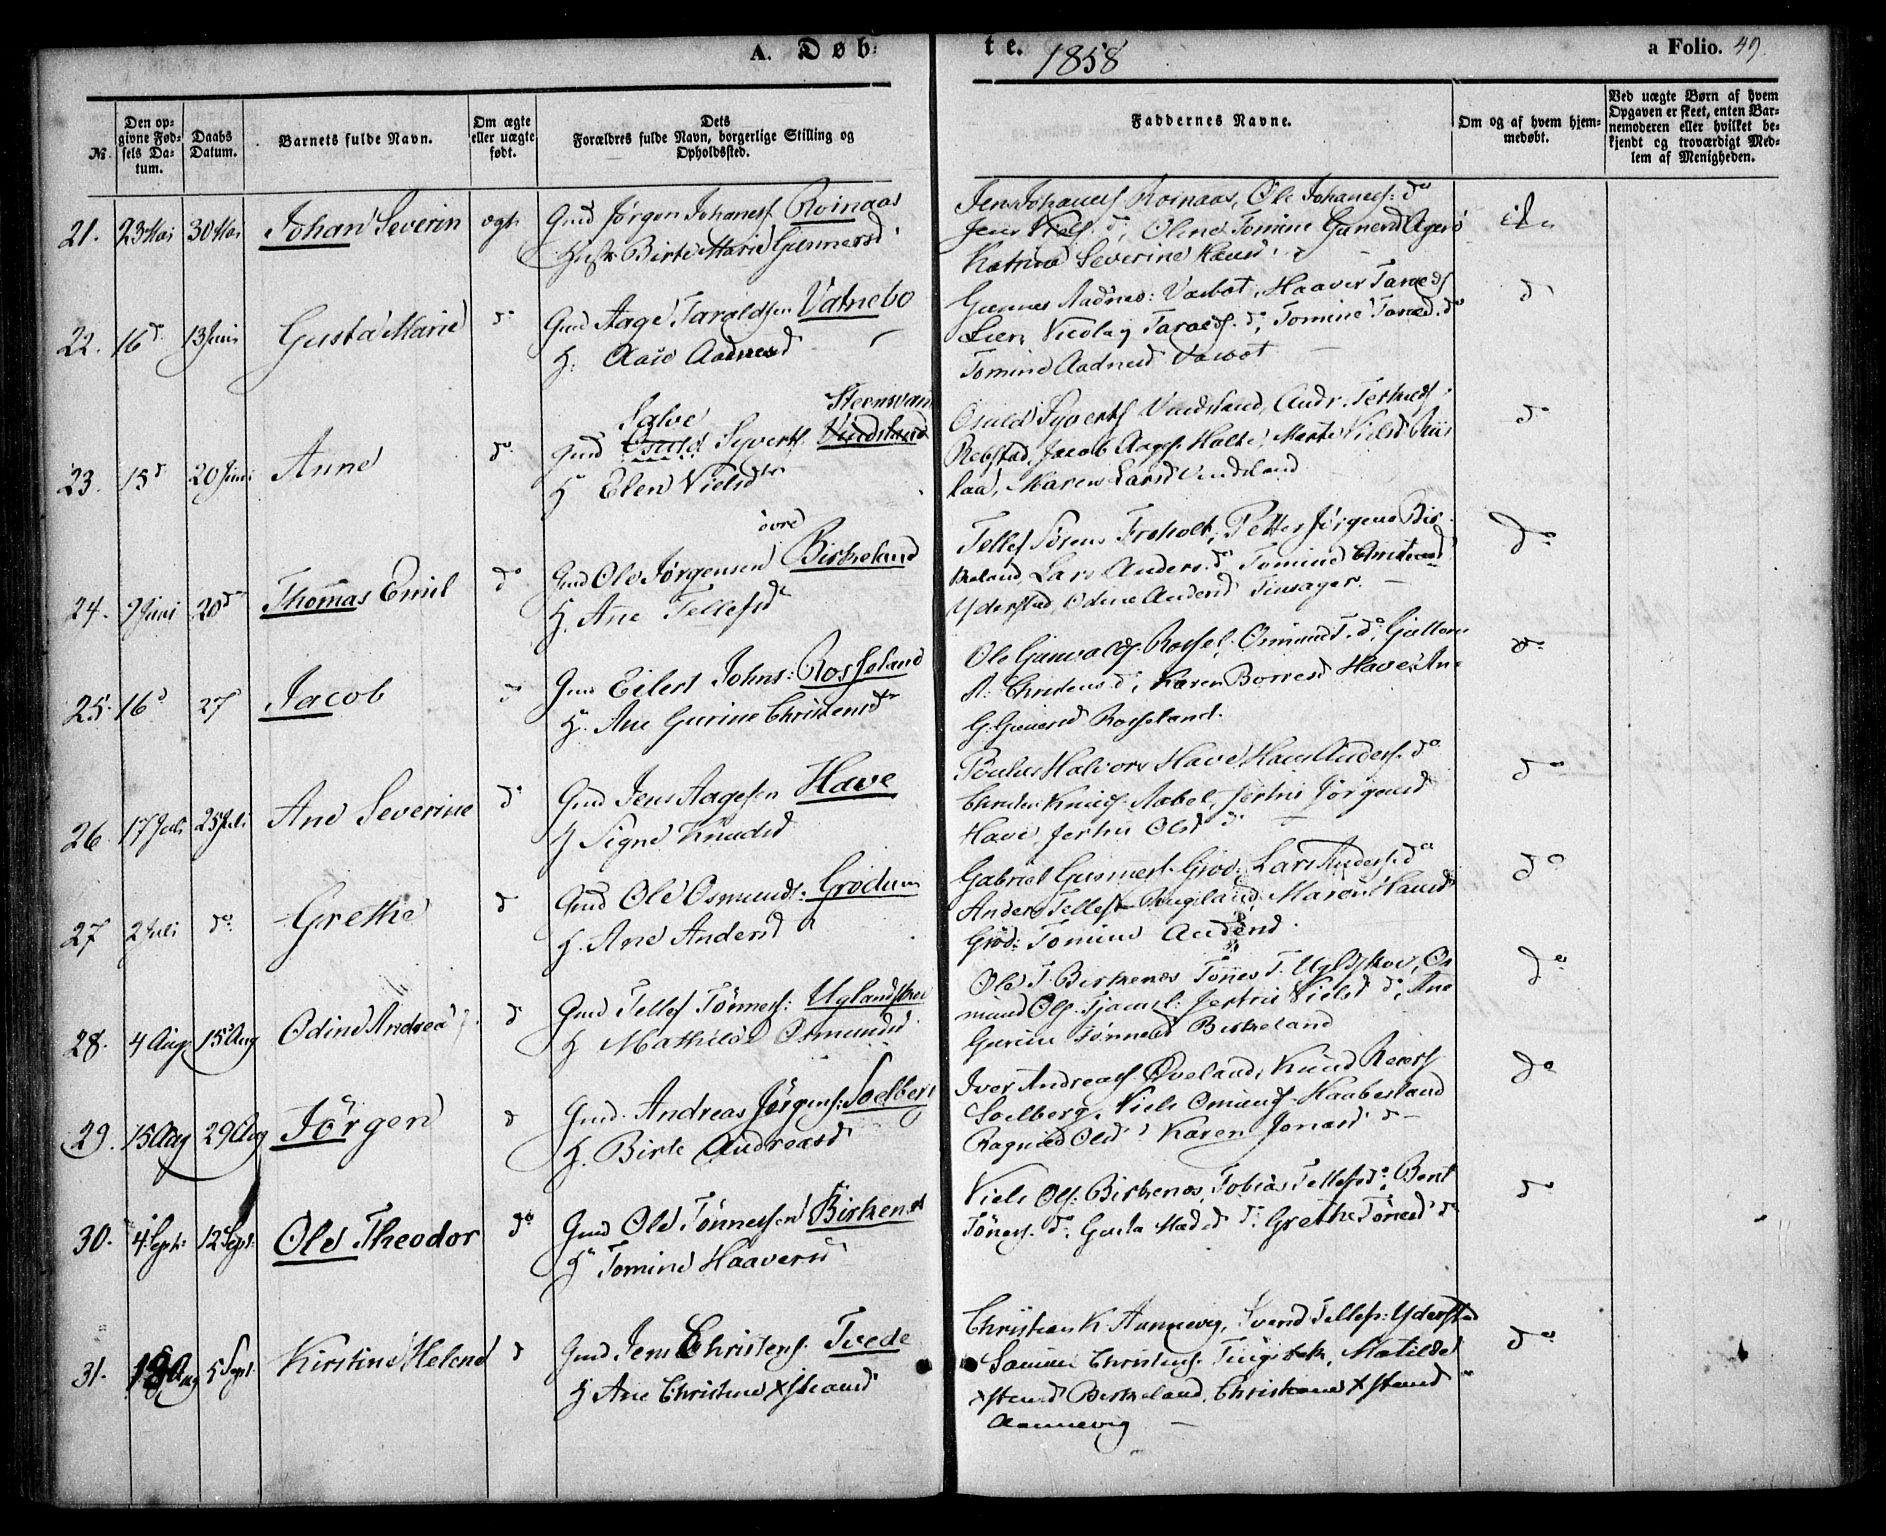 A. Døb-
te.
1858
a Folio. 49.
No.
Den op-
givne Fød-
sels Da-
tum.
Daabs
Datum.
Barnets fulde Navn.
Om ægte
eller uægte
født.
Dets
Forældres fulde Navn, borgerlige Stilling og
Opholdssted.
Faddernes Navne.
Om og af hvem hjem-
medøbt.
Ved uægte Børn af hvem
Opgaven er skeet, enten Bar-
nemoderen eller hvilket be-
kjendt og troværdigt Med-
lem af Menigheden.
21. 23 Mai 30 Mai Johan Severin ægte Gmd Jørgen Johanesf Roinaas
Hust Birte Marie Gunnersd
Jens Johanesf Roinaas, Ole Johanesf: do
Jens Nielsf. d, Oline Tomine Gunersd Agerö
Katrine Severine
22. 16 d. 13 Juni Gusta Marie do Gmd Aage Taraldsen Vatnebo
H. Aase Aadnesd
Gunner Aadnes: Vatbot, Haaver Taraldsf
Lien, Nicolay Taraldsf. d, Tomine Taraldsd. do
Tomine Aadnesd Vatbot
23. 15 d 20 Juni Anne do Gmd Salve Osuld Syverts. Vindsland
Steensvand
H Elen Nielsd
Osuld Syvertsf Vindsland, Andr. Terkelsf
Rebstad, Jacob Aagesf. Holte, Marte Nielsd Riis
laa, Maren Larsd Vindsland
24. 9 Juni 20 d Thomas Emil do Gmd Ole Jørgensen Birkeland
övre
H. Ane Tellefsd
Tellef Sörens Froholt, Petter Jörgens Bir
keland, Lars Anders. d, Tomine Christensd
Yderstad, Odine Andersd Tinsager.
25. 16 d 27 Jacob d Gmd Eilert Johns: Rosseland
H. Ane Gurine Christensd
Ole Gunvalds. Rossel. Osmund T. do, Guttorm
A. Christens. d, Karen Borresd Have, An
G. Gunersd Rosseland.
26 17 Juli 25 Juli Ane Severine do Gmd Jens Aagesen Have
H Signe Knudsd
Paulus Halvors Have, Hans Andersf. do
Christen Knudsf. Aabel, Jertru Jörgensd
Have, Jertru Olsd d
27 2 Juli do Grethe d Gmd Ole Osmunds: Grödum
H. Ane Andersd
Gabriel Gunnersf Gröd:, Lars Andersf. do
Anders Tellefs Ougland, Maren Hansd
Gröd: Tomine Andersd.
28. 4 Aug 15 Aug Odine Andrea d Gmd Tellef Tönnesf: Uglandskov
H Mathilde Osmundsd.
Ole T. Birkenes Tönes T. Uglskov, Os
mund Olsf. Tjamsl: Jertru Nielsd d, Ane
Gurine Tönnesd Birkeland
29. 15 Aug 29 Aug Jörgen d Gmd. Andreas Jörgens: Soelberg
H. Birte Andreasd
Iver Andreasf. Øveland, Knud Reiersf
Soelberg, Niels Omundsf. Haabesland
Ragnild Olsd d Karen Jonasd d
30. 4 Sept: 12 Sept: Ole Theodor do Gmd Ole Tönnessen Birkenes
H Tomine Haaversd
Niels Olsf. Birkenes, Tobias Tellefs do, Bent
Tönesf. d. Gusta Madsd d. Grethe Tönesd do
31. 18 Aug 5 Sept: Kirstine Helene d Gmd Jens Christens. Tvede
H Ane Christine Xstiansd
Christian K. Aannevig, Svend Tellefs: Yderstad
Samuel Christens. Tingsbek, Matilde
Xstensd Birkeland, Christiane Xstensd
Aannevig